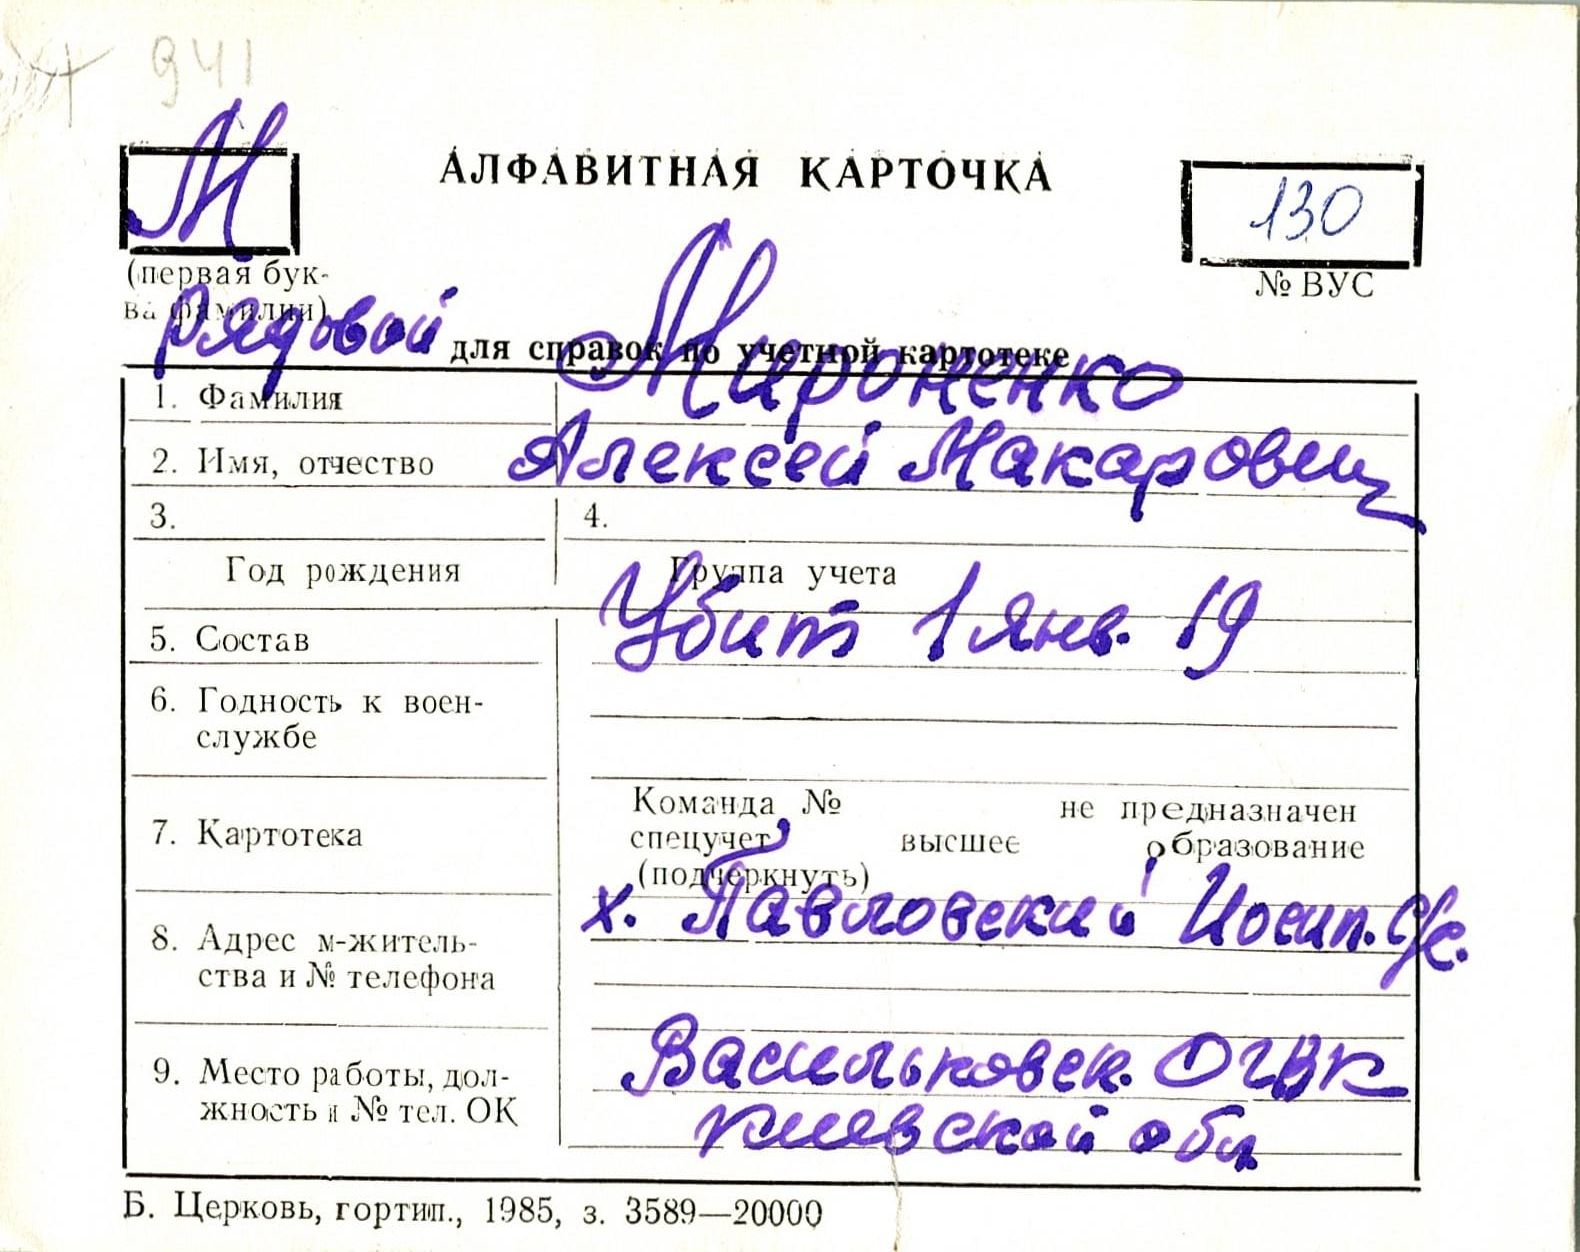 941
М
АЛФАВИТНАЯ КАРТОЧКА
130
(первая бук-
ва фамилии)
№ ВУС
рядовой
для справок по учетной картотеке
1. Фамилия Мироненко
2. Имя, отчество Алексей Макарович
3. 4.
Год рождения Группа учета
Убит 1 янв. 19
5. Состав
6. Годность к воен-
службе
Команда № не предназначен
7. Картотека
спецучет высшее образование
(подчеркнуть)
х. Павловский Иосип. с/с.
8. Адрес м-житель-
ства и № телефона
9. Место работы, дол-
жность и № тел. ОК
Васильковск. ОГВК
Киевской обл
Б. Церковь, гортип., 1985, з. 3589—20000